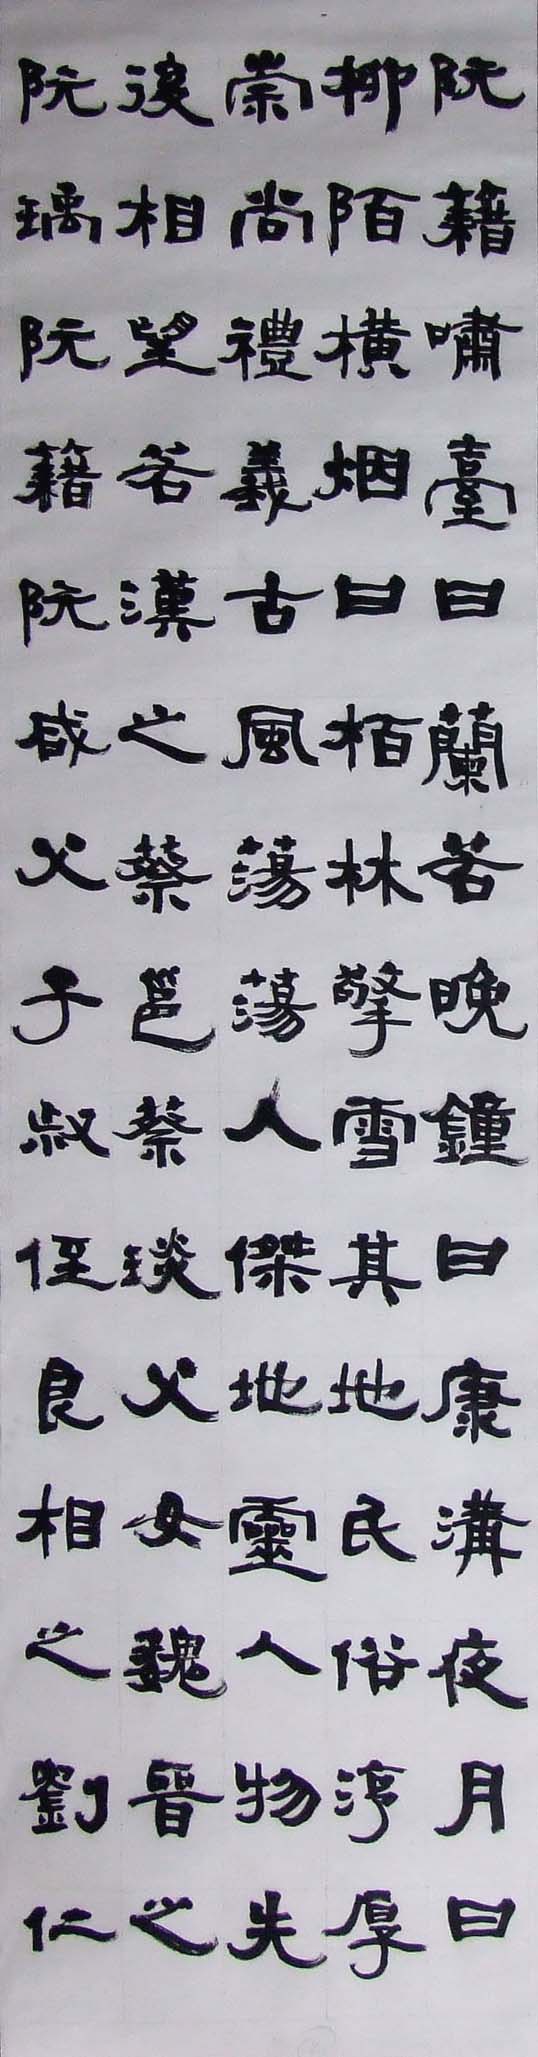 阮籍嘯臺曰蘭若晚鐘曰康溝夜月曰
柳陌橫烟曰栢林擎雪其地民俗淳厚
崇尚禮義古風蕩蕩人傑地靈人物先
後相望若漢之蔡邕蔡琰父女魏晉之
阮瑀阮籍阮咸父子叔侄良相之劉仁